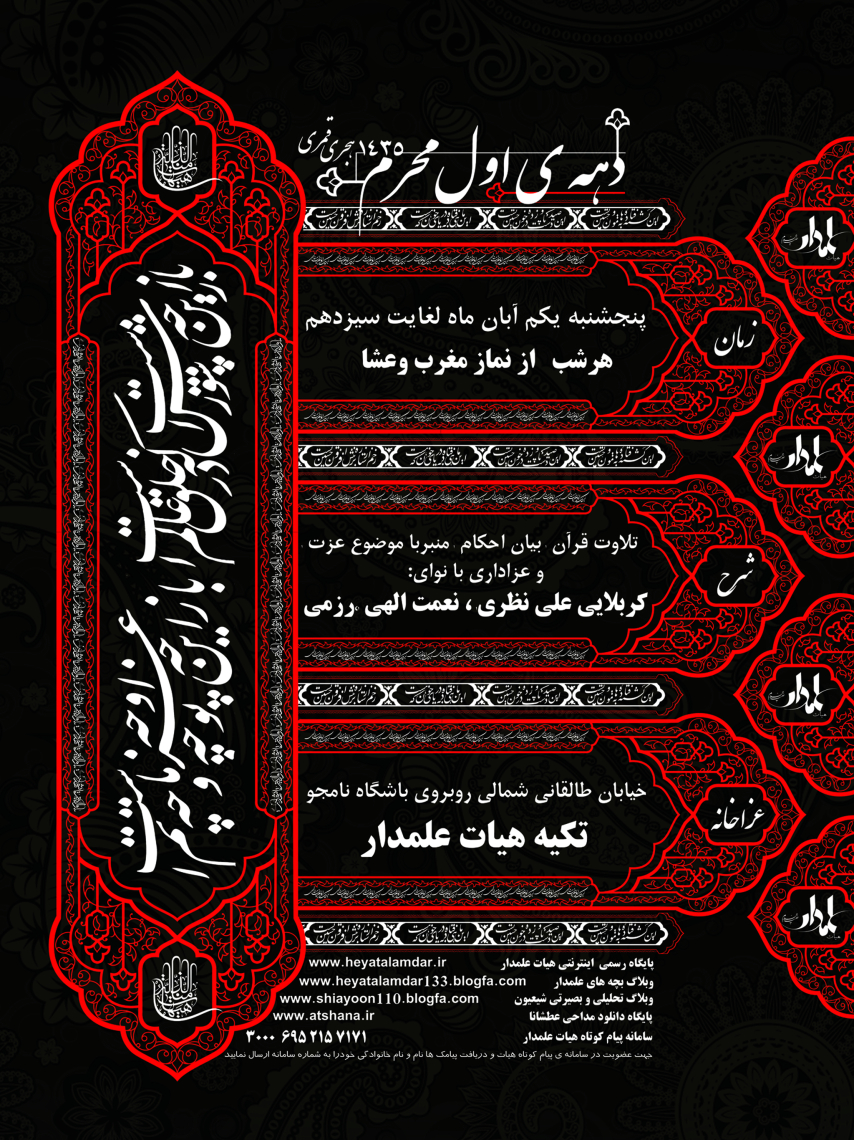 دهه ی اول محرم
۱۴۳۵ هجری قمری
علمدار
زمان
پنجشنبه یکم آبان ماه لغایت سیزدهم
هرشب از نماز مغرب وعشا
علمدار
شرح
تلاوت قرآن بیان احکام منبربا موضوع عزت
و عزاداری با نوای:
کربلایی علی نظری ، نعمت الهی رزمی
علمدار
عزاخانه
خیابان طالقانی شمالی روبروی باشگاه نامجو
تکیه هیات علمدار
علمدار
باز این چه شورش است که در خلق عالم است
باز این چه نوحه و چه عزا و چه ماتم است
پایگاه رسمی اینترنتی هیات علمدار www.heyatalamdar.ir
وبلاگ بچه های علمدار www.heyatalamdar133.blogfa.com
وبلاگ تحلیلی و بصیرتی شیعیون www.shiayoon110.blogfa.com
پایگاه دانلود مداحی عطشانا www.atshana.ir
سامانه پیام کوتاه هیات علمدار ۳۰۰۰ ۶۹۵ ۲۱۵ ۷۱۷۱
جهت عضویت در سامانه ی پیام کوتاه هیات و دریافت پیامک ها نام و نام خانوادگی خودرا به شماره سامانه ارسال نمایید